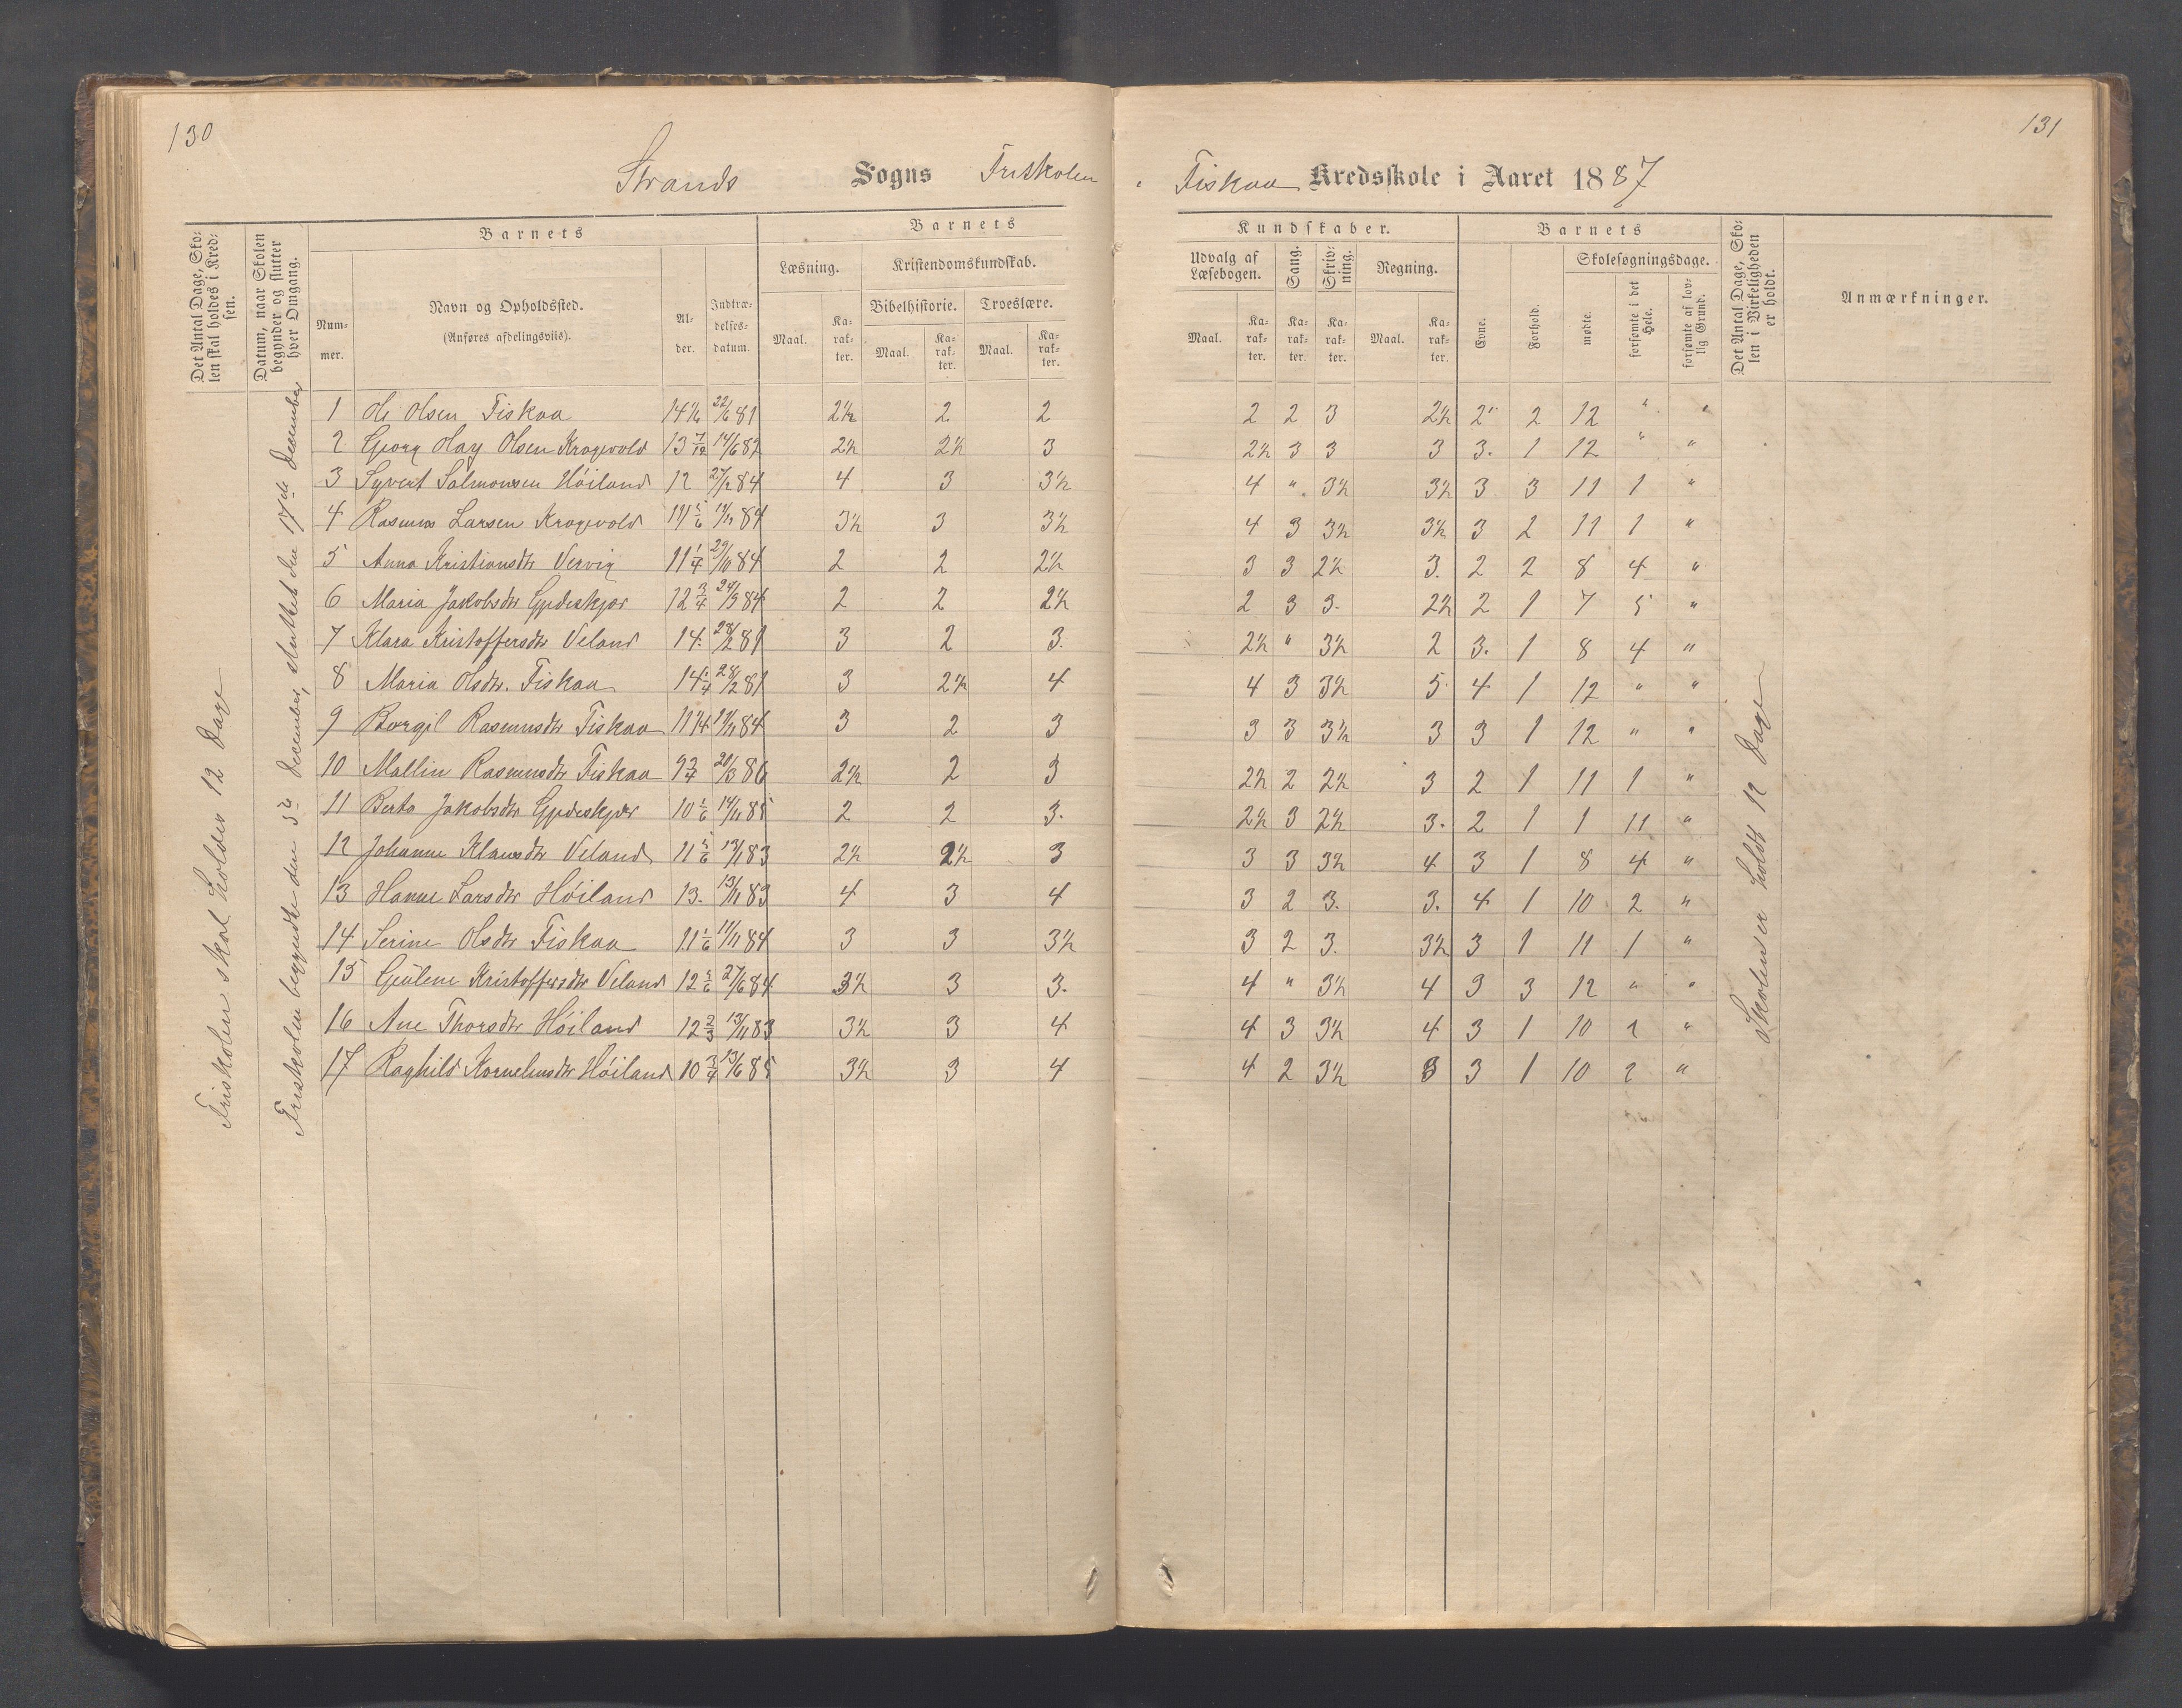 130
131
Strands Sogns Friskolen i Fiskaa Kredsskole i Aaret 1887
Det Antal Dage, Skolen skal holdes i Kredsen.
Datum, naar Skolen begynder og slutter hver Omgang.
Barnets
Nummer.
Navn og Opholdssted.
(Anføres afdelingsviis).
Alder.
Indtrædelsesdatum.
Barnets
Læsning.
Kristendomskundskab.
Bibelhistorie. Troeslære.
Maal. Karakter. Maal. Karakter. Maal. Karakter.
Kundskaber.
Udvalg af Læsebogen. Sang. Skrivning. Regning.
Maal. Karakter. Karakter. Karakter. Maal. Karakter.
Barnets
Evne. Forhold.
Skolesøgningsdage.
mødte. forsømte i det Hele. forsømte af lovlig Grund.
Det Antal Dage, Skolen i Virkeligheden er holdt.
Anmærkninger.
Friskolen skal holdes 12 Dage
Friskolen begyndte den 5te December, sluttet den 17de December
Skolen er holdt 12 Dage
1 Ole Olsen Fiskaa 14 1/6 22/6 81 2½ 2 2 2 2 3 2½ 2 2 12 " "
2 Georg Olay Olsen Krogevold 13 7/12 14/6 82 2½ 2½ 3 2½ 3 3 3 3. 1 12 " "
3 Syvert Salmonsen Höiland 12 27/2 84 4 3 3½ 4 " 3½ 3½ 3 3 11 1 "
4 Rasmus Larsen Krogevold 11 5/6 11/11 84 3½ 3 3½ 4 3 3½ 3½ 3 2 11 1 "
5 Anna Kristiansdtr Vervig 11 1/4 29/10 84 2 2 2½ 3 3 2½ 3. 2 2 8 4 "
6 Maria Jakobsdtr Gjedeskjær 12 3/4 24/3 84 2 2 2½ 2 3 3. 2½ 2 1 7 5 "
7 Klara Kristoffersdtr Veland 14. 28/2 81 3 2 3. 2½ " 3½ 2 3. 1 8 4 "
8 Maria Olsdtr. Fiskaa 14 1/4 28/2 81 3 2½ 4 4 3 3½ 5 4 1 12 " "
9 Borgil Rasmusdtr Fiskaa 11 1/4 11/11 84 3 2 3 3 3 3½ 3 3 1 12 " "
10 Mallin Rasmusdtr Fiskaa 9 3/4 20/3 86 2½ 2 3 2½ 2 2½ 3 2 1 11 1 "
11 Berta Jakobsdtr Gjedeskjær 10 1/6 14/11 85 2 2 3. 2½ 3 2½ 3. 2 1 1 11 "
12 Johanne Klausdtr Veland 11 5/6 13/11 83 2½ 2½ 3 3 3 3½ 4 3 1 8 4 "
13 Hanne Larsdtr Höiland 13. 13/11 83 4 3 4 3 2 3. 3. 4 1 10 2 "
14 Serine Olsdtr Fiskaa 11 1/6 11/11 84 3 3 3½ 3 2 3. 3½ 3 1 11 1 "
15 Gjulene Kristoffersdtr Veland 12 5/6 27/6 84 3½ 3 3. 4 " 3½ 4 3 3 12 " "
16 Ane Thorsdtr Höiland 12 2/3 13/11 83 3½ 3 4 4 3 3½ 4 3 1 10 2 "
17 Raghild Korneliusdtr Höiland 10 3/4 13/6 85 3½ 3 4 4 2 3½ 3 3 1 10 2 "